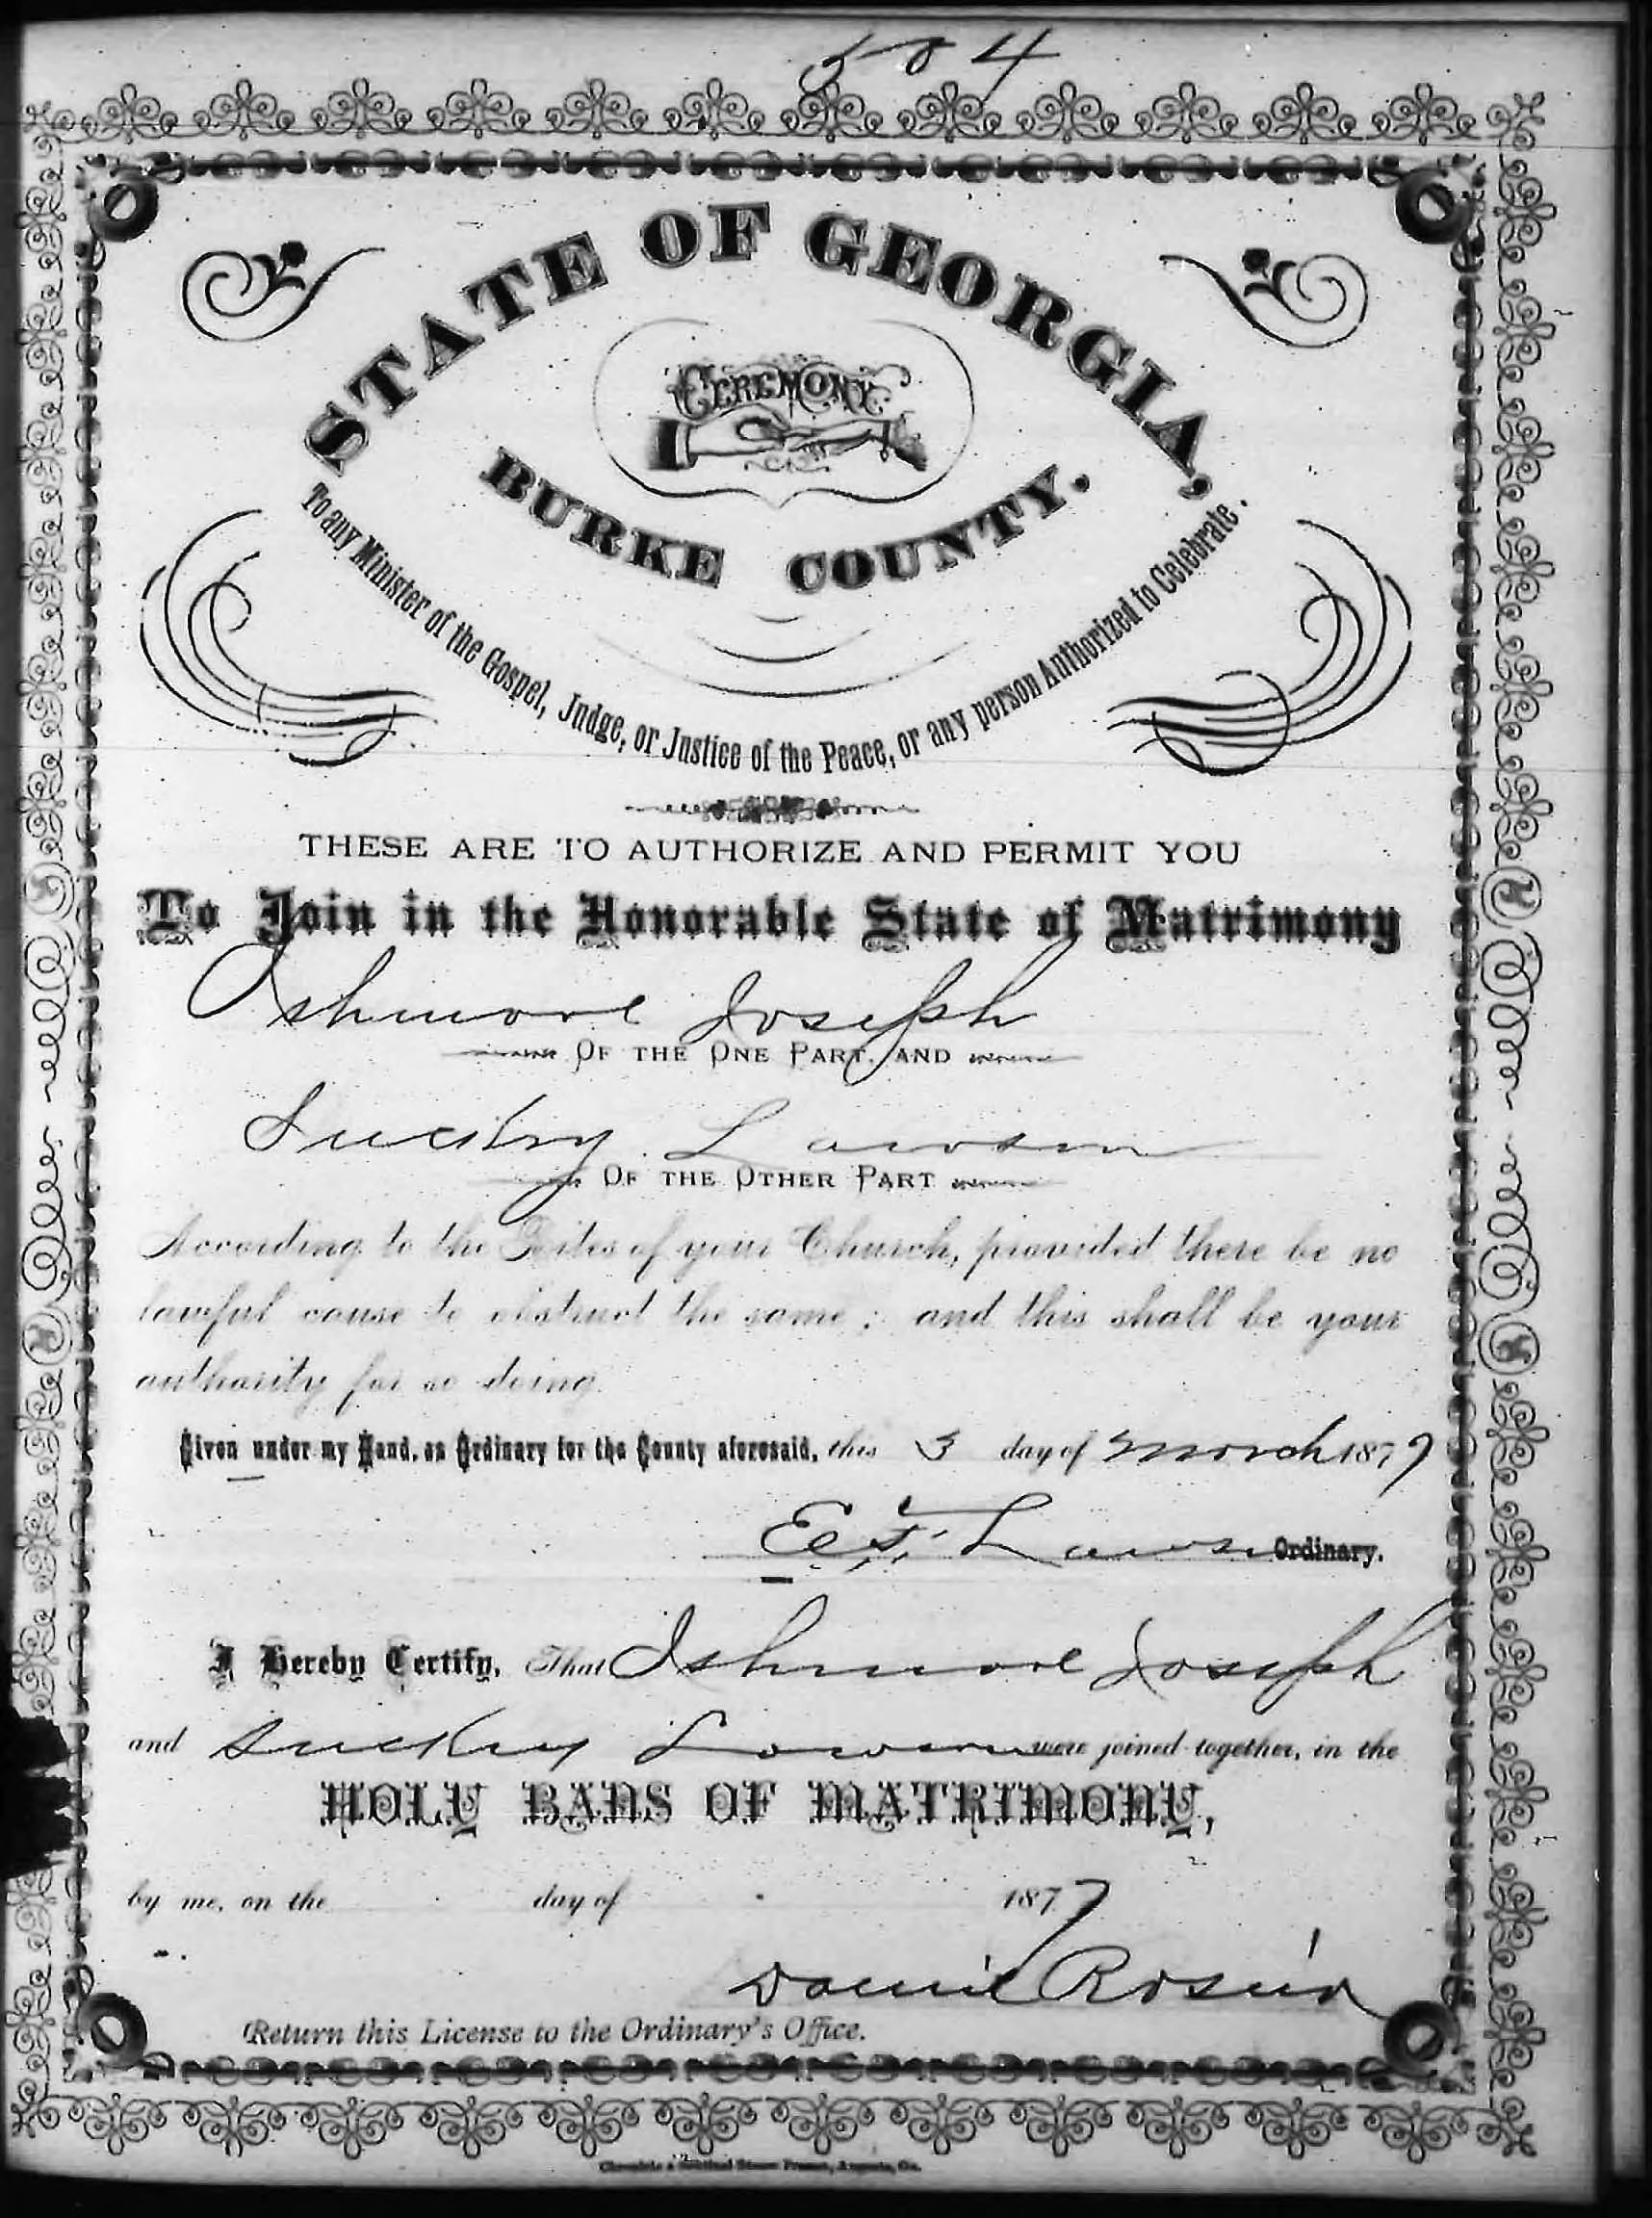 504
STATE OF GEORGIA,
CEREMONY
BURKE COUNTY.
To any Minister of the Gospel, Judge, or Justice of the Peace, or any person Authorized to Celebrate.
THESE ARE TO AUTHORIZE AND PERMIT YOU
To Join in the Honorable State of Matrimony
Ishmore Joseph
OF THE ONE PART, AND
Suckey Lawson
OF THE OTHER PART
According to the Rites of your Church, provided there be no
lawful cause to obstruct the same; and this shall be your
authority for so doing
Given under my Hand, as Ordinary for the County aforesaid, this 3 day of March 1877
E. F. Lawson Ordinary.
I Hereby Certify, That Ishmore Joseph
and Suckey Lawson were joined together, in the
HOLY BANS OF MATRIMONY,
by me, on the day of 1877
Return this License to the Ordinary's Office.
Chronicle & Sentinel Steam Presses, Augusta, Ga.